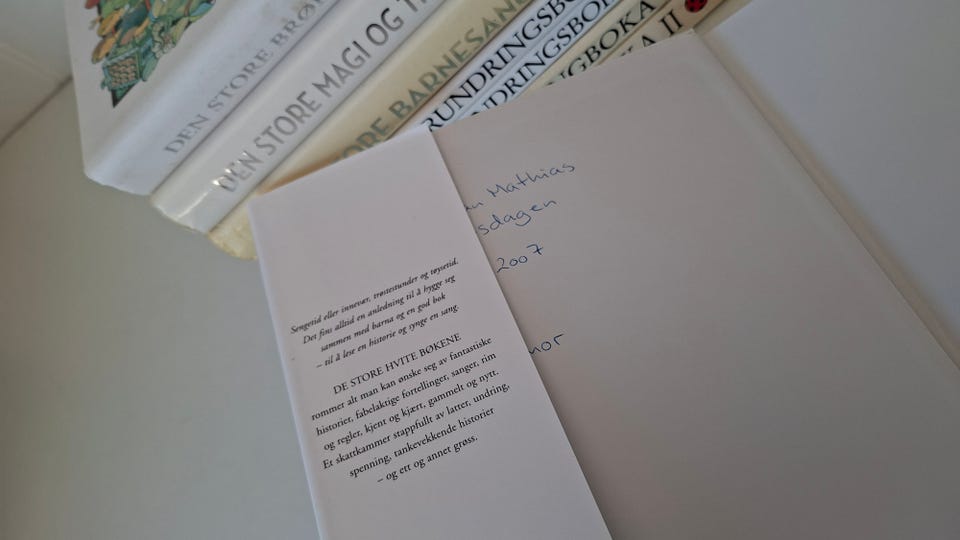 DEN STORE BRØ
DEN STORE MAGI OG T
STORE BARNESAN
UNDRINGSBO
NDRINGSBOK
NGBOKA
KA II
Mathias
sdagen
2007
mor
Sengetid eller innevær, trøstestunder og tøysetid.
Det fins alltid en anledning til å hygge seg
sammen med barna og en god bok
– til å lese en historie og synge en sang.
DE STORE HVITE BØKENE
rommer alt man kan ønske seg av fantastiske
historier, fabelaktige fortellinger, sanger, rim
og regler, kjent og kjært, gammelt og nytt.
Et skattkammer stappfullt av latter, undring,
spenning, tankevekkende historier
– og ett og annet grøss.